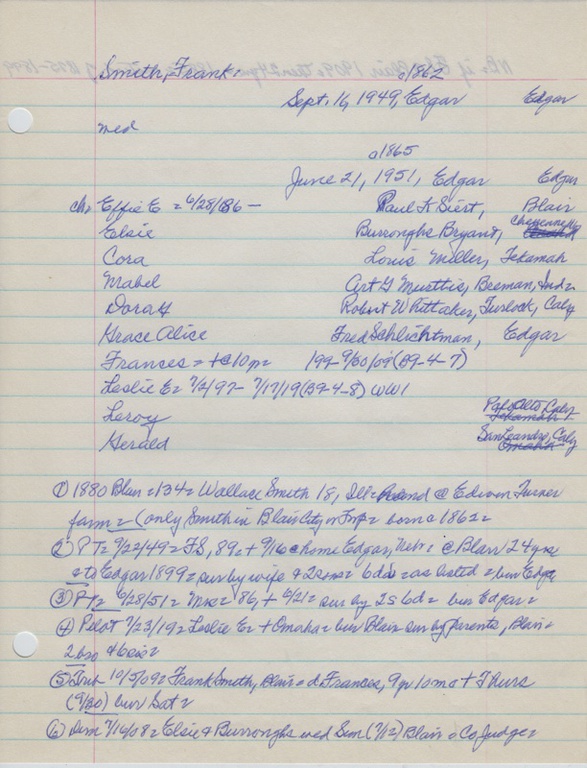 Smith, Frank = a1862
Sept. 16, 1949, Edgar Edgar
med
a1865
June 21, 1951, Edgar Edgar
ch, Effie E = 6/28/86 — Paul K Siert, Blair
Elsie Burroughs Bryant, Cheyenne
Cora Louis Miller, Tekamah
Mabel Art G Beeman, Ind
Dora Robert Whittaker, Turlock, Calif
Grace Alice Fred Schlichtman, Edgar
Frances = 199 - 9/30/09 (B9-4-7)
Leslie E = 7/2/97 - 7/17/19 (B9-4-8) WW1
Leroy Palo Alto, Calif Tekamah
Gerald San Leandro, Calif Omaha
① 1880 Blair = 134 = Wallace Smith 18, Ill = hand @ Edwin Turner
farm = (only Smith in Blair City or Twp = born a 1862 =
② PT = 9/22/49 = FS, 89 = + 9/16 @ home Edgar, Nebr = @ Blair 24 yrs
= to Edgar 1899 = sur by wife & 2 sons = 6 das = as listed = bur Edgar
③ 6/28/51 = Mrs = 86, + 6/21 = sur by 2s 6d = bur Edgar =
④ Pilot 7/23/19 = Leslie E = + Omaha = bur Blair sur by parents, Blair =
2 bro & 6 sis =
⑤ Trib 10/5/09 = Frank Smith, Blair = d Frances, 9y 10m = + Thurs
(9/30) bur Sat =
⑥ Dem 7/16/08 = Elsie & Burroughs wed Sun (7/12) Blair = Co Judge =